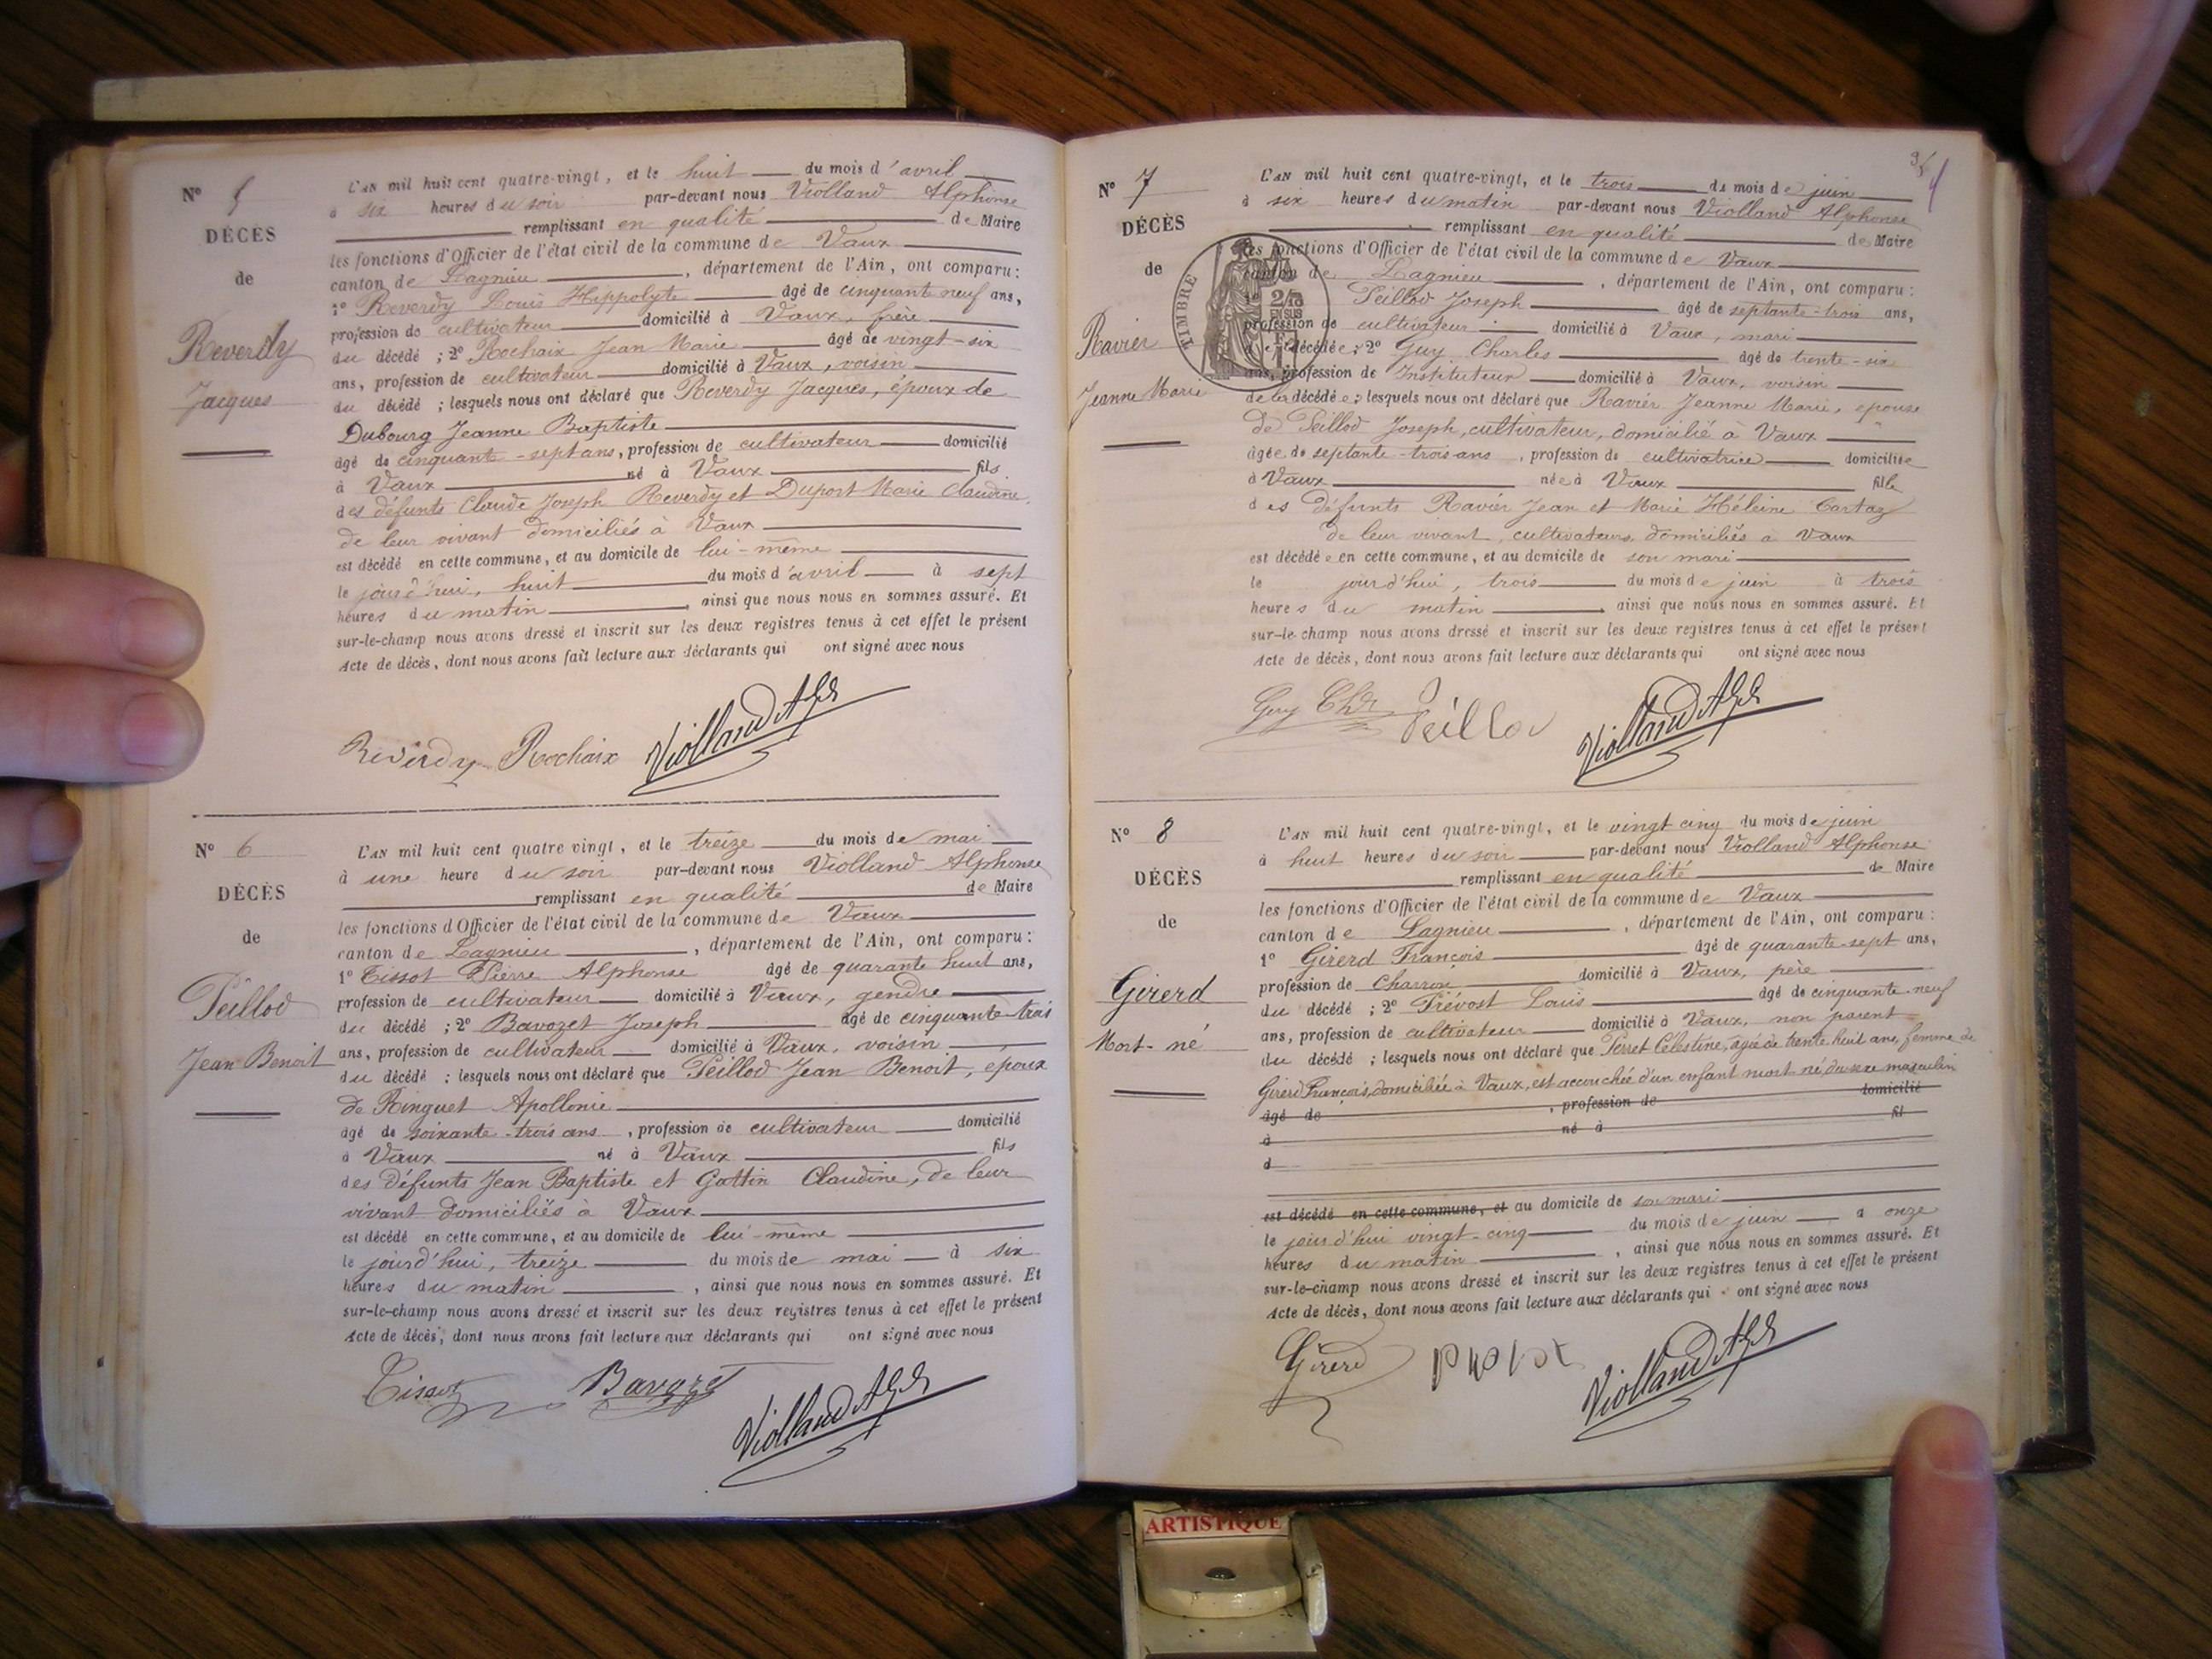 N° 5
DÉCÈS
de
Reverdy
Jacques
L'AN mil huit cent quatre-vingt, et le huit du mois d'avril
à six heures du soir par-devant nous Violland Alphonse
remplissant en qualité de Maire
les fonctions d'Officier de l'état civil de la commune de Vaux
canton de Lagnieu, département de l'Ain, ont comparu:
1° Reverdy Louis Hippolyte âgé de cinquante neuf ans,
profession de cultivateur domicilié à Vaux, frère
du décédé ; 2° Rochaix Jean Marie âgé de vingt-six
ans, profession de cultivateur domicilié à Vaux, voisin
du décédé ; lesquels nous ont déclaré que Reverdy Jacques, époux de
Dubourg Jeanne Baptiste
âgé de cinquante-sept ans, profession de cultivateur domicilié
à Vaux né à Vaux fils
des défunts Claude Joseph Reverdy et Duport Marie Claudine,
de leur vivant domiciliés à Vaux
est décédé en cette commune, et au domicile de lui-même
le jourd'hui, huit du mois d'avril à sept
heures du matin, ainsi que nous nous en sommes assuré. Et
sur-le-champ nous avons dressé et inscrit sur les deux registres tenus à cet effet le présent
Acte de décès, dont nous avons fait lecture aux déclarants qui ont signé avec nous
Reverdy Rochaix Violland Alph
N° 6
DÉCÈS
de
Peillod
Jean Benoit
L'AN mil huit cent quatre vingt, et le treize du mois de mai
à une heure du soir par-devant nous Violland Alphonse
remplissant en qualité de Maire
les fonctions d'Officier de l'état civil de la commune de Vaux
canton de Lagnieu, département de l'Ain, ont comparu:
1° Tissot Pierre Alphonse âgé de quarante huit ans,
profession de cultivateur domicilié à Vaux, gendre
du décédé ; 2° Bavozet Joseph âgé de cinquante-trois
ans, profession de cultivateur domicilié à Vaux, voisin
du décédé ; lesquels nous ont déclaré que Peillod Jean Benoit, epoux
de Ringuet Apollonie
âgé de soixante-trois ans, profession de cultivateur domicilié
à Vaux né à Vaux fils
des défunts Jean Baptiste et Gottin Claudine, de leur
vivant domiciliés à Vaux
est décédé en cette commune, et au domicile de lui-même
le jourd'hui, treize du mois de mai à six
heures du matin, ainsi que nous nous en sommes assuré. Et
sur-le-champ nous avons dressé et inscrit sur les deux registres tenus à cet effet le présent
Acte de décès, dont nous avons fait lecture aux déclarants qui ont signé avec nous
Tissot Bavozet Violland Alph
N° 7
DÉCÈS
de
Ravier
Jeanne Marie
TIMBRE
2/10
EN SUS
L'AN mil huit cent quatre-vingt, et le trois du mois de juin
à six heures du matin par-devant nous Violland Alphonse
remplissant en qualité de Maire
les fonctions d'Officier de l'état civil de la commune de Vaux
canton de Lagnieu, département de l'Ain, ont comparu:
1° Peillod Joseph âgé de septante-trois ans,
profession de cultivateur domicilié à Vaux, mari
de décédée ; 2° Guy Charles âgé de trente-six
ans, profession de Instituteur domicilié à Vaux, voisin
de la décédée ; lesquels nous ont déclaré que Ravier Jeanne Marie, epouse
de Peillod Joseph, cultivateur, domicilié à Vaux
âgée de septante-trois ans, profession de cultivatrice domiciliée
à Vaux née à Vaux fille
des défunts Ravier Jean et Marie Héleine Cartaz
de leur vivant, cultivateurs, domiciliés à Vaux
est décédée en cette commune, et au domicile de son mari
le jourd'hui, trois du mois de juin à trois
heures du matin, ainsi que nous nous en sommes assuré. Et
sur-le-champ nous avons dressé et inscrit sur les deux registres tenus à cet effet le présent
Acte de décès, dont nous avons fait lecture aux déclarants qui ont signé avec nous
Guy Chs Peillod Violland Alph
N° 8
DÉCÈS
de
Girerd
Mort-né
L'AN mil huit cent quatre-vingt, et le vingt cinq du mois de juin
à huit heures du soir par-devant nous Violland Alphonse
remplissant en qualité de Maire
les fonctions d'Officier de l'état civil de la commune de Vaux
canton de Lagnieu, département de l'Ain, ont comparu:
1° Girerd François âgé de quarante-sept ans,
profession de Charron domicilié à Vaux, père
du décédé ; 2° Prévost Louis âgé de cinquante-neuf
ans, profession de cultivateur domicilié à Vaux, non parent
du décédé ; lesquels nous ont déclaré que Perret Célestine, âgée de trente huit ans, femme de
Girerd François, domiciliée à Vaux, est accouchée d'un enfant mort né du sexe masculin
âgé de , profession de domicilié
à né à fil
d
est décédé en cette commune, et au domicile de son mari
le jourd'hui vingt-cinq du mois de juin à onze
heures du matin, ainsi que nous nous en sommes assuré. Et
sur-le-champ nous avons dressé et inscrit sur les deux registres tenus à cet effet le présent
Acte de décès, dont nous avons fait lecture aux déclarants qui ont signé avec nous
Girerd Violland Alph
ARTISTIQUE